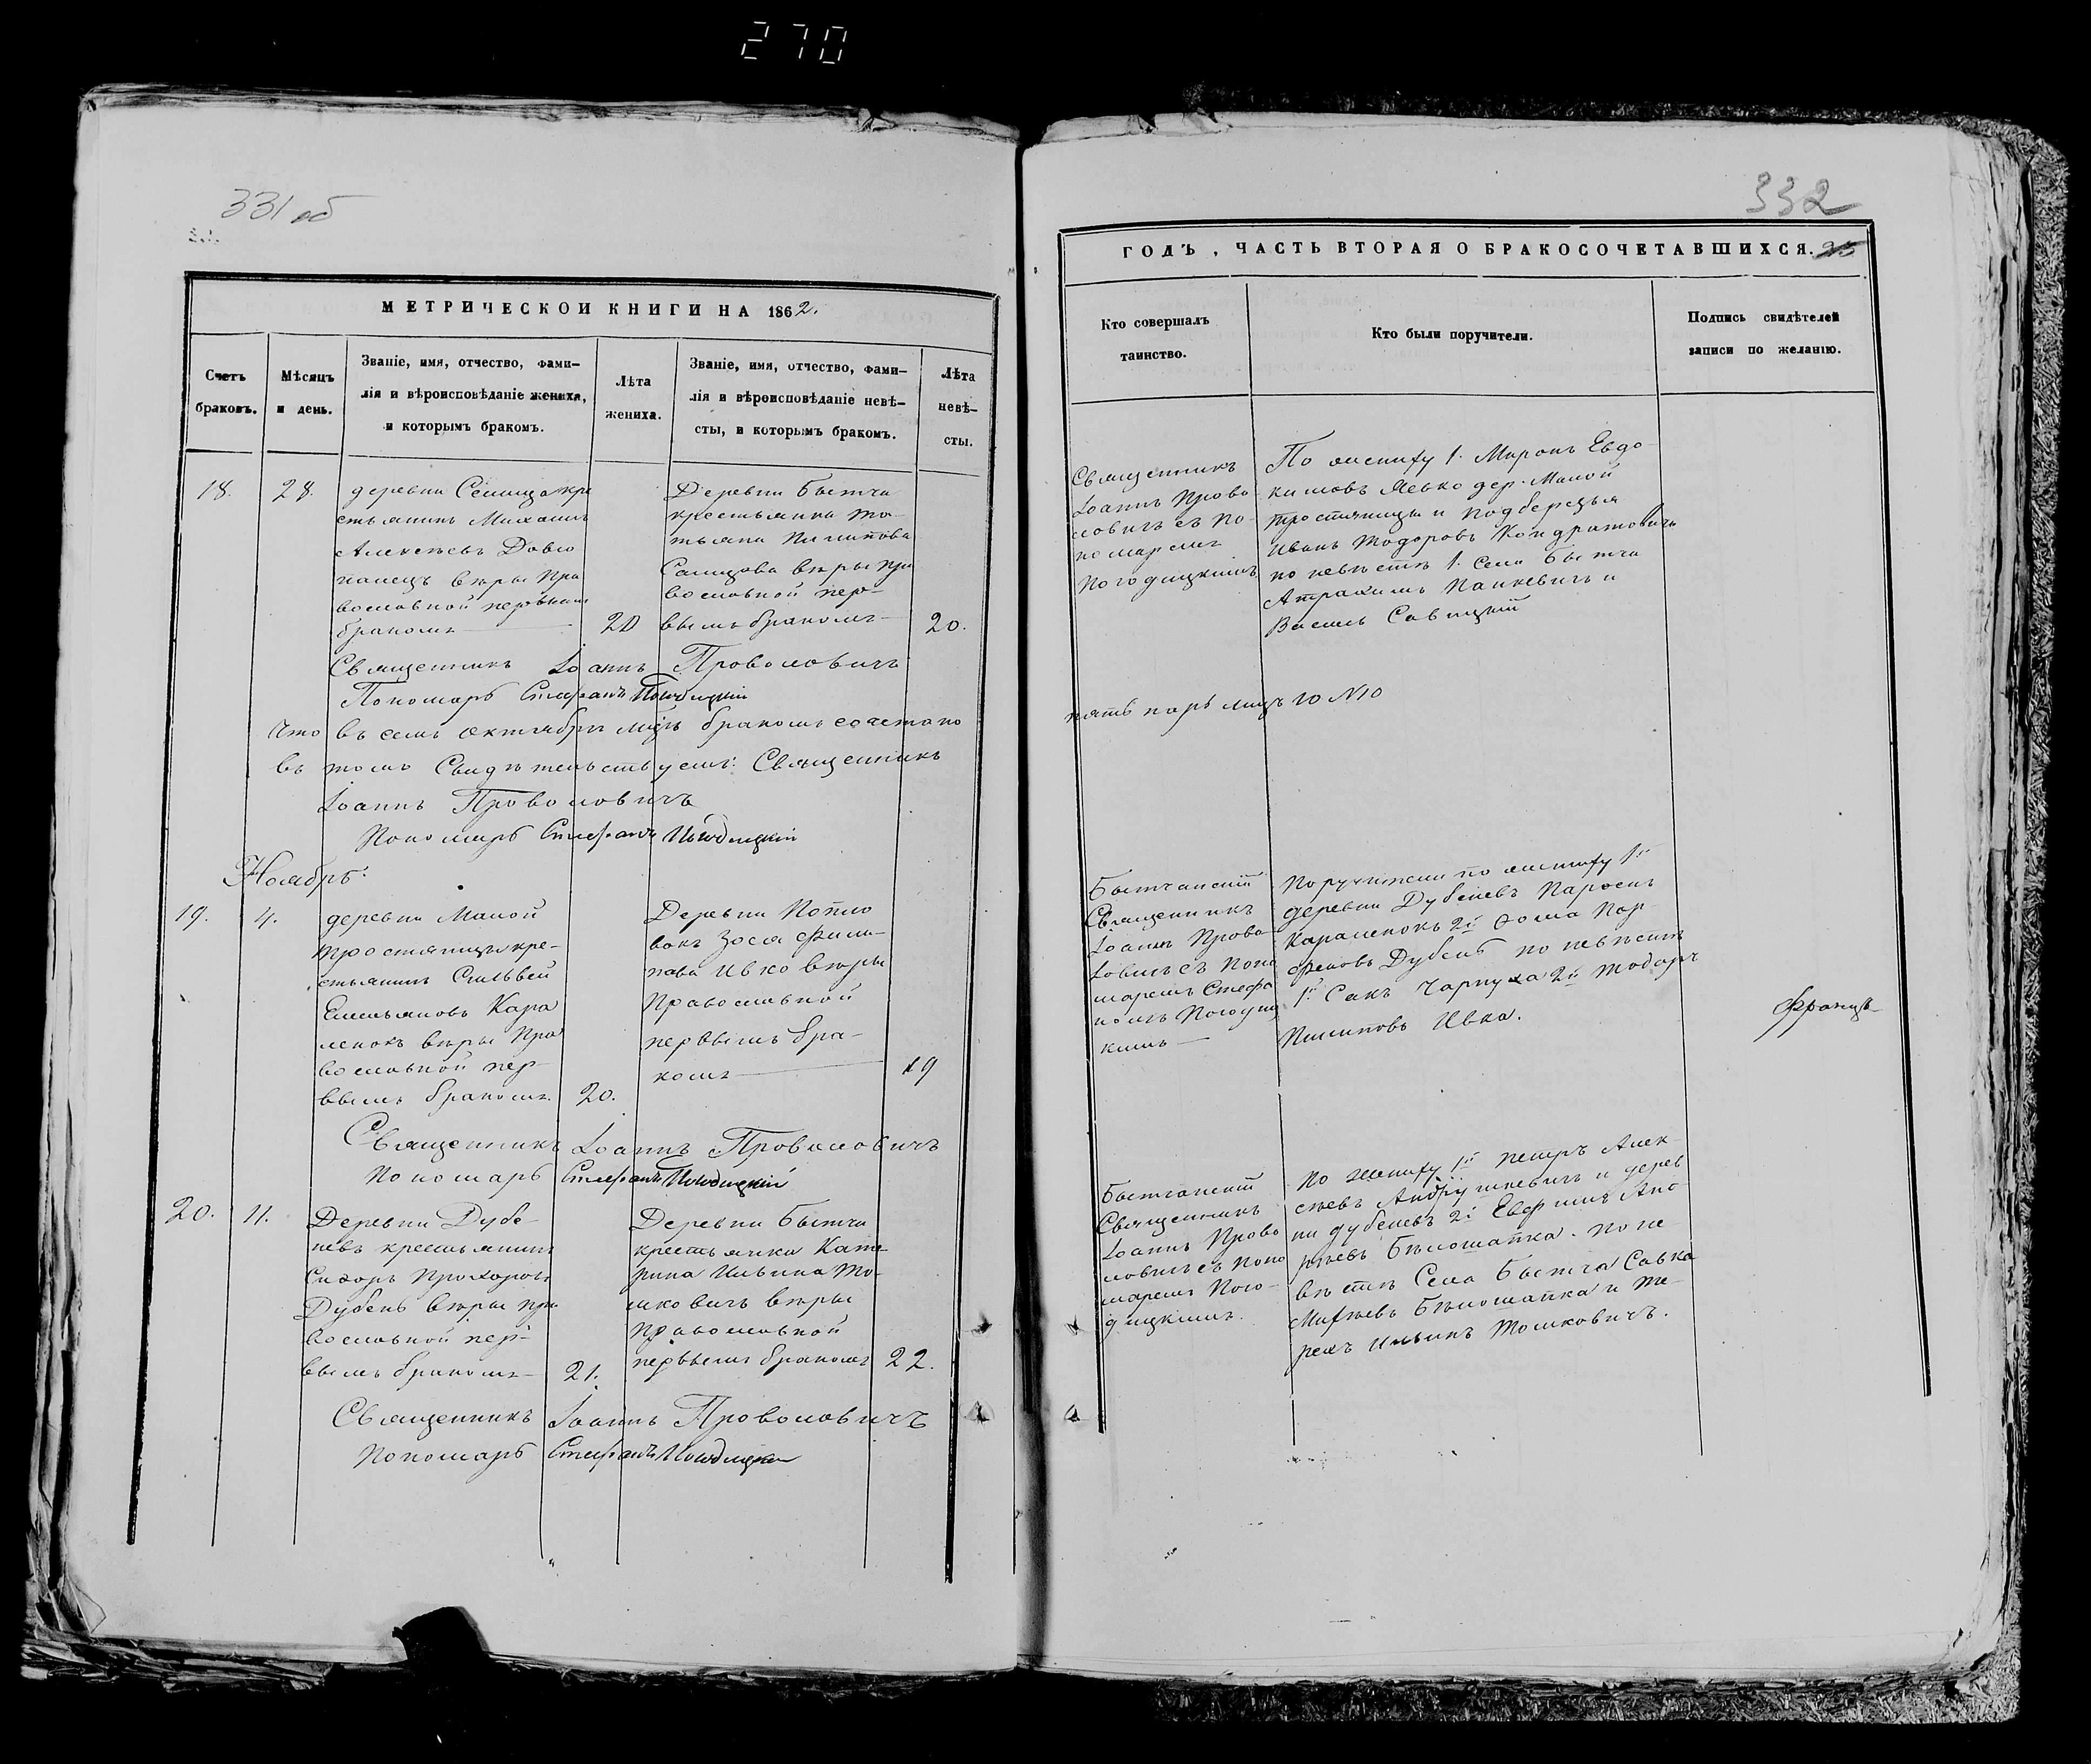 270
331 об
МЕТРИЧЕСКОЙ КНИГИ НА 1862.
Счетъ
браковъ.
Мѣсяцъ
и день.
Званіе, имя, отчество, фами-
лія и вѣроисповѣданіе жениха,
и которымъ бракомъ.
Лѣта
жениха.
Званіе, имя, отчество, фами-
лія и вѣроисповѣданіе невѣ-
сты, и которымъ бракомъ.
Лѣта
невѣ-
сты.
18.
28.
деревни кре
стьянинъ Михаилъ
Алексѣевъ
вѣры Пра
вославной первымъ
бракомъ
20
Деревни Бытча
крестьянка Та-
тьяна
вѣры Пра
вославной пер-
вымъ бракомъ
20.
Священникъ Іоаннъ Проволовичъ
Пономарь Стефанъ Погодицкій
Что въ семъ октябрѣ мцѣ бракомъ сочетано
въ томъ Свидѣтельствуемъ: Священникъ
Іоаннъ Проволовичъ
Пономарь Стефанъ Погодицкій
Ноябрь:
19.
4.
деревни Малой
Тростяницы кре-
стьянинъ
Емельяновъ Кара
ленокъ вѣры Пра
вославной пер-
вымъ бракомъ
20.
Деревни
Зося Фили-
пова Ивко вѣры
Православной
первымъ бра-
комъ
19
Священникъ Іоаннъ Проволовичъ
Пономарь Стефанъ Погодицкій
20.
11.
Деревни Дубе-
невъ крестьянинъ
Сидоръ Прохоровъ
Дубень вѣры пра
вославной пер-
вымъ бракомъ
21.
Деревни Бытча
крестьянка Кате-
рина Ильина То-
шковичъ вѣры
Православной
первымъ бракомъ
22.
Священникъ Іоаннъ Проволовичъ
Пономарь Стефанъ
332
ГОДЪ, ЧАСТЬ ВТОРАЯ О БРАКОСОЧЕТАВШИХСЯ.
Кто совершалъ
таинство.
Кто были поручители.
Подпись свидѣтелей
записи по желанію.
Священникъ
Іоаннъ Прово
ловичъ съ По-
номаремъ
Погодицкимъ
По жениху 1. Миронъ Евдо
кимовъ дер. Малой
Тростяницы и Подберезья
Иванъ Тодоровъ Кондратовичъ
по невѣстѣ 1. села Бытча
Панкевичъ и
Василь Савицкій
пять паръ лицъ 10 №10
Бытчанскій
Священникъ
Іоаннъ Прово
ловичъ съ Поно
маремъ Стефа
номъ Погодиц
кимъ
Поручители по жениху 1й
деревни Дубеневъ
Караленокъ 2й Ѳома Пар-
феновъ Дубень по невѣстѣ
1й Сакъ 2й Тодоръ
Пилиповъ Ивка.
Бытчанскій
Священникъ
Іоаннъ Прово
ловичъ съ Поно
маремъ Пого-
дицкимъ.
По жениху 1й Петръ Алек-
сѣевъ Андрушкевичъ и дерев
ни дубеневъ 2й Ефимъ Анд-
рѣевъ Бѣлошапка. По не-
вѣстѣ Села Бытча Савка
Бѣлошапка и Те-
рехъ Ильинъ Тошковичъ.